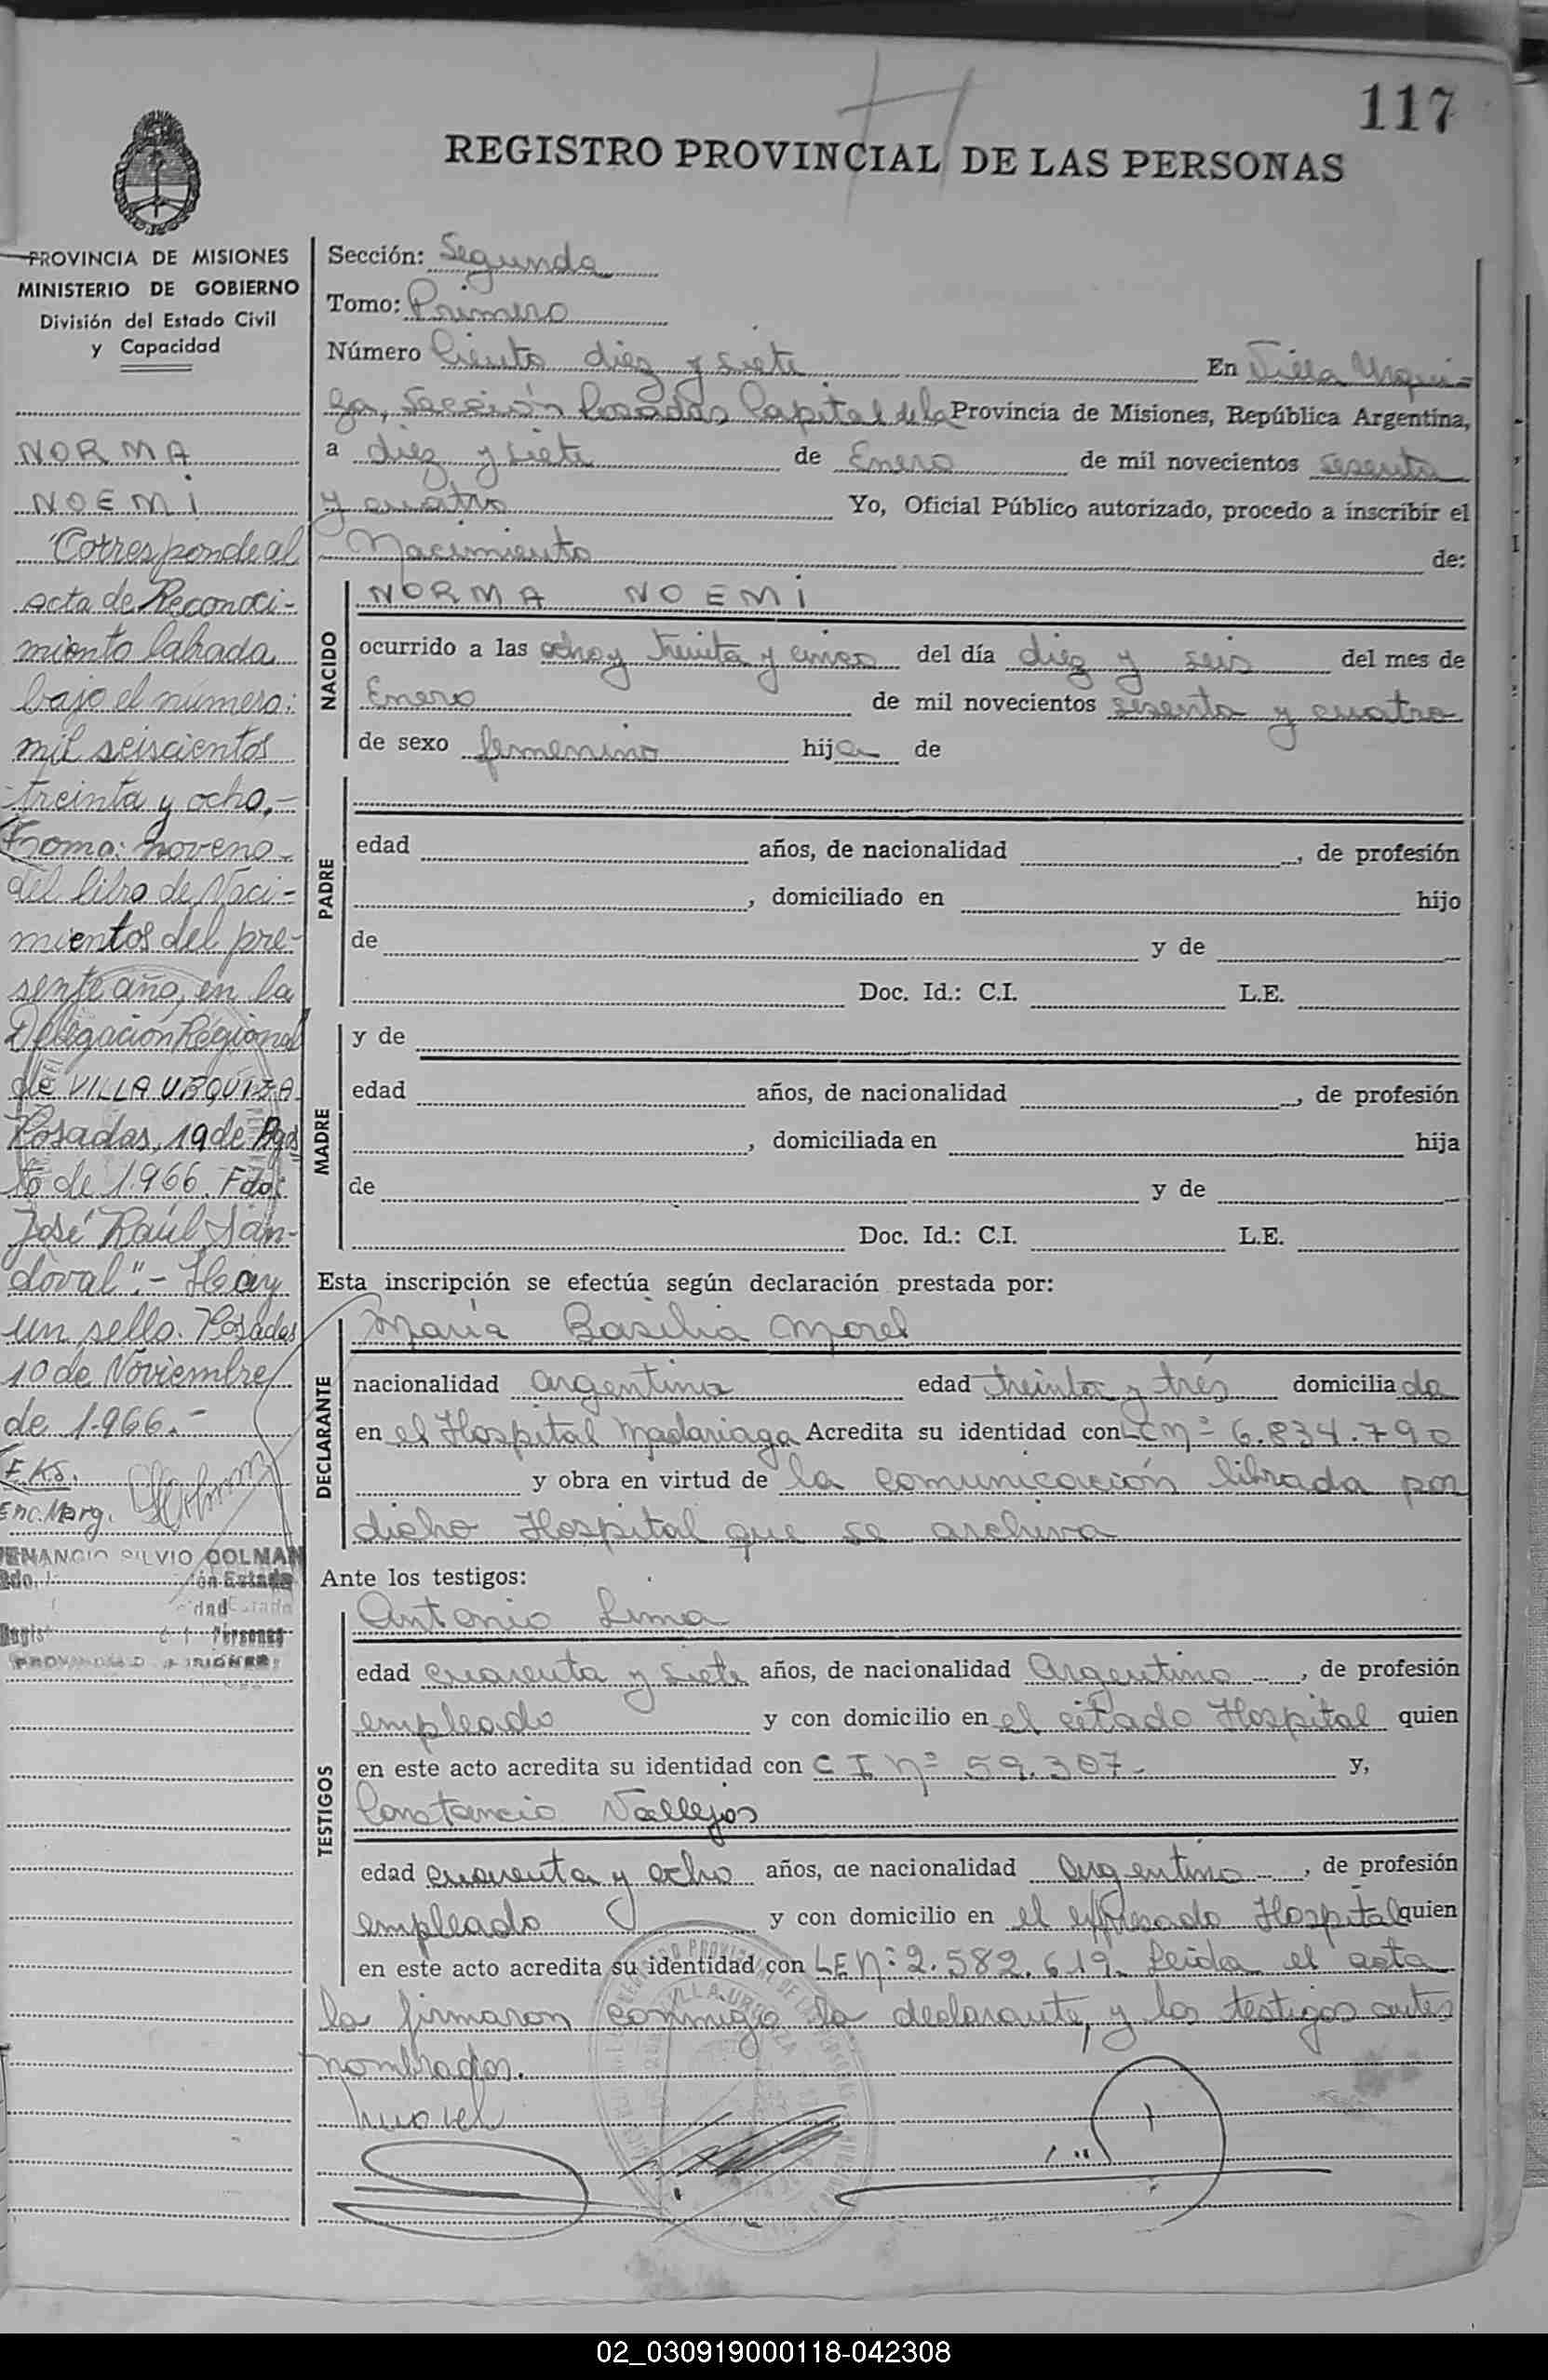 117
REGISTRO PROVINCIAL DE LAS PERSONAS
PROVINCIA DE MISIONES
MINISTERIO DE GOBIERNO
División del Estado Civil
y Capacidad
NORMA
NOEMI
"Corresponde al
acta de Reconoci-
miento labrada
bajo el número:
mil seiscientos
treinta y ocho.-
Tomo: noveno-
del libro de Naci-
mientos del pre-
sente año, en la
Delegación Regional
de VILLA URQUIZA.
Posadas, 19 de Agos
to de 1.966. Fdo:
José Raúl San-
doval".- Hay
un sello. Posadas
10 de Noviembre
de 1.966.-
Enc. Marg.
VENANCIO SILVIO COLMAN
Sección: Segunda
Tomo: Primero
Número Ciento diez y siete En Villa Urqui-
za, Sección Posadas Capital de la Provincia de Misiones, República Argentina,
a diez y siete de Enero de mil novecientos sesenta
y cuatro Yo, Oficial Público autorizado, procedo a inscribir el
Nacimiento de:
NACIDO
NORMA NOEMI
ocurrido a las ocho y treinta y cinco del día diez y seis del mes de
Enero de mil novecientos sesenta y cuatro
de sexo femenino hija de
PADRE
edad años, de nacionalidad , de profesión
, domiciliado en hijo
de y de
Doc. Id.: C.I. L.E.
MADRE
y de
edad años, de nacionalidad , de profesión
, domiciliada en hija
de y de
Doc. Id.: C.I. L.E.
Esta inscripción se efectúa según declaración prestada por:
DECLARANTE
María Basilia Morel
nacionalidad argentina edad treinta y trés domiciliada
en el Hospital Madariaga Acredita su identidad con LC nº 6.834.790
y obra en virtud de la comunicación librada por
dicho Hospital que se archiva
Ante los testigos:
TESTIGOS
Antonio Lima
edad cuarenta y siete años, de nacionalidad Argentino , de profesión
empleado y con domicilio en el citado Hospital quien
en este acto acredita su identidad con C I nº 59.307.- y,
Constancio Vallejos
edad cuarenta y ocho años, de nacionalidad argentino , de profesión
empleado y con domicilio en el expresado Hospital quien
en este acto acredita su identidad con LE nº 2.582.619. Leida el acta
la firmaron conmigo la declarante, y los testigos antes
nombrados.
Morel
02_030919000118-042308